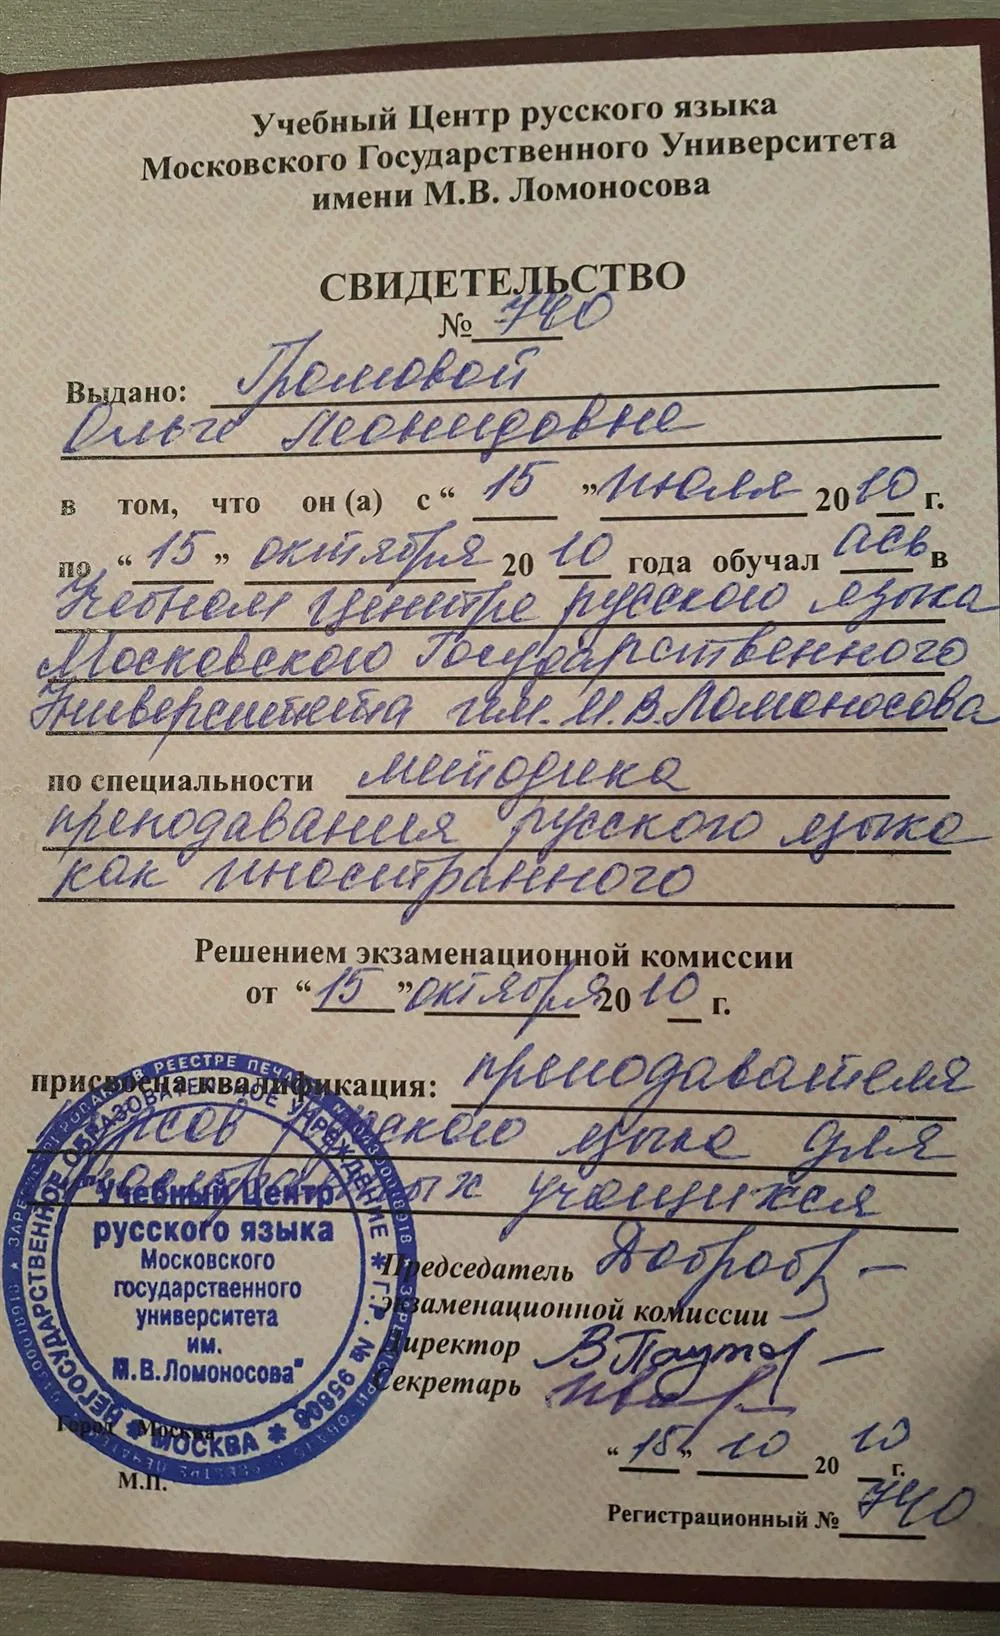 Учебный Центр русского языка
Московского Государственного Университета
имени М.В. Ломоносова
СВИДЕТЕЛЬСТВО
№ 740
Выдано: Громовой
Ольге Леонидовне
в том, что он (а) с “ 15 ” июля 2010 г.
по “ 15 ” октября 2010 года обучал ась в
Учебном Центре русского языка
Московского Государственного
Университета им. М.В. Ломоносова
по специальности методика
преподавания русского языка
как иностранного
Решением экзаменационной комиссии
от “ 15 ” октября 2010 г.
присвоена квалификация: преподавателя
курсов русского языка для
иностранных учащихся
Председатель
экзаменационной комиссии
Директор
Секретарь
Город Москва
М.П.
“ 15 ” 10 2010 г.
Регистрационный № 740
НЕГОСУДАРСТВЕННОЕ ОБРАЗОВАТЕЛЬНОЕ УЧРЕЖДЕНИЕ * Г.Р. № 95806 * МОСКВА *
"Учебный Центр
русского языка
Московского
государственного
университета
им.
М.В.Ломоносова"